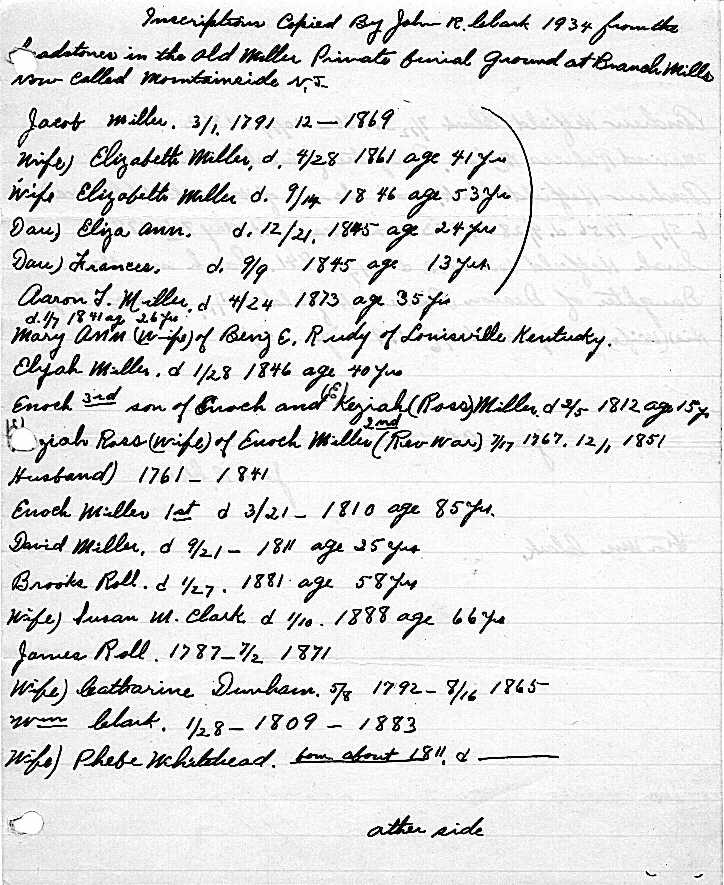 Inscriptions Copied By John R. Clark 1934 from the
Headstones in the old Miller Private burial Ground at Branch Mills
now called Mountainside N.J.
Jacob Miller. 3/1, 1791 12 — 1869
Wife) Elizabeth Miller, d. 4/28 1861 age 41 yrs
Wife Elizabeth Miller d. 9/14 1846 age 53 yrs
Dau) Eliza Ann. d. 12/21, 1845 age 24 yrs
Dau) Frances. d. 9/9 1845 age 13 yrs
Aaron T. Miller, d 4/24 1873 age 35 yrs
d. 1/7 1841 ag 26 yrs
Mary Ann (Wife) of Benj E. Rudy of Louisville Kentucky.
Elijah Miller. d 1/28 1846 age 40 yrs
Enoch 3rd son of Enoch and (E) Keziah (Ross) Miller, d 2/5 1812 age 15 y
ziah Ross (wife) of Enoch Miller 2nd (Rev War) 7/17 1767. 12/1, 1851
Husband) 1761 - 1841
Enoch Miller 1st d 3/21 - 1810 age 85 yrs.
David Miller. d 9/21 - 1811 age 25 yrs
Brooks Roll. d 1/27. 1881 age 58 yrs
Wife) Susan M. Clark d 1/10. 1888 age 66 yrs
James Roll. 1787 - 7/2 1871
Wife) Catharine Dunham. 5/8 1792 - 8/16 1865
Wm Clark. 1/28 - 1809 - 1883
Wife) Phebe Whitehead. born about 1811, d ———
other side